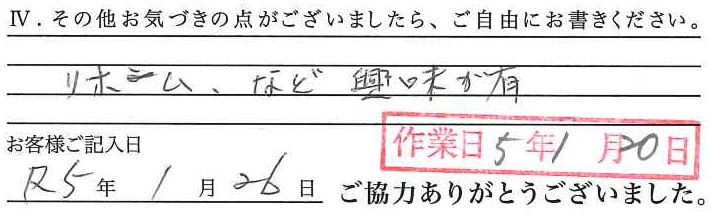 Ⅳ. その他お気づきの点がございましたら、ご自由にお書きください。
リホーム、など 興味が有
お客様ご記入日
作業日 5年1月20日
R5年 1月26日 ご協力ありがとうございました。